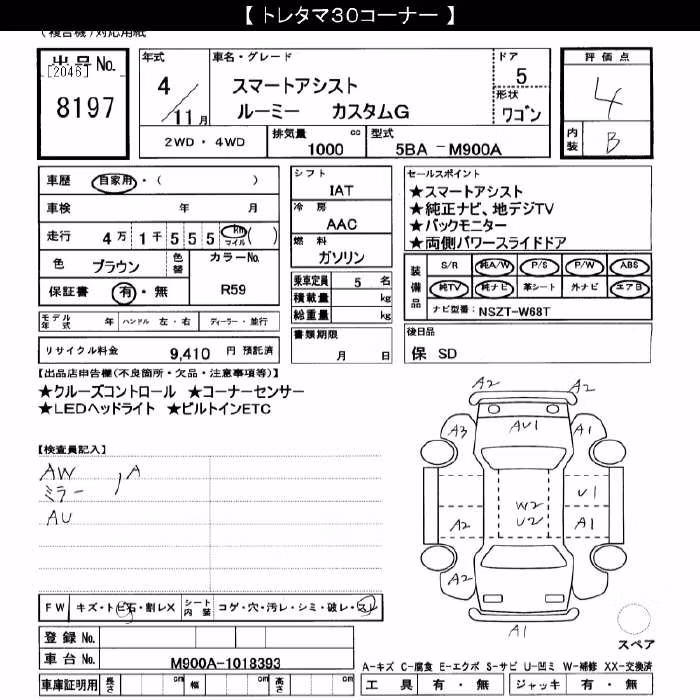 【 トレタマ30コーナー 】
(複合機)対応用紙
出品No.
[2046]
8197
年式
4/11月
車名・グレード
スマートアシスト
ルーミー カスタムG
ドア
5
形状
ワゴン
評価点
4
内装
B
2WD ・ 4WD
排気量 cc
1000
型式
5BA -M900A
車歴 自家用・( )
車検 年 月
走行 4万 1千 5 5 5 km マイル ( )
色 ブラウン
色替
カラーNo.
R59
保証書 有・無
シフト
IAT
冷房
AAC
燃料
ガソリン
乗車定員 5 名
積載量 kg
総重量 kg
セールスポイント
★スマートアシスト
★純正ナビ、地デジTV
★バックモニター
★両側パワースライドドア
装備品
S/R 純A/W P/S P/W ABS
純TV 純ナビ 革シート 外ナビ エアB
ナビ型番: NSZT-W68T
モデル年式 年 ハンドル 左・右 ディーラー・並行
書類期限
月 日
後日品
保 SD
リサイクル料金 9,410 円 預託済
【出品店申告欄(不良箇所・欠品・注意事項等)】
★クルーズコントロール ★コーナーセンサー
★LEDヘッドライト ★ビルトインETC
【検査員記入】
AW
ミラー ) A
AU
A2 A2
A3 AU1 A1
U1
W2
A2 U2 A1
A2
A1
スペア
FW キズ・トビ石・割レX シート内装 コゲ・穴・汚レ・シミ・破レ・スレ
登録No.
車台No. M900A-1018393
車庫証明用 長さ cm 幅 cm 高さ cm
A-キズ C-腐食 E-エクボ S-サビ U-凹ミ W-補修 XX-交換済
工具 有・無 ジャッキ 有・無